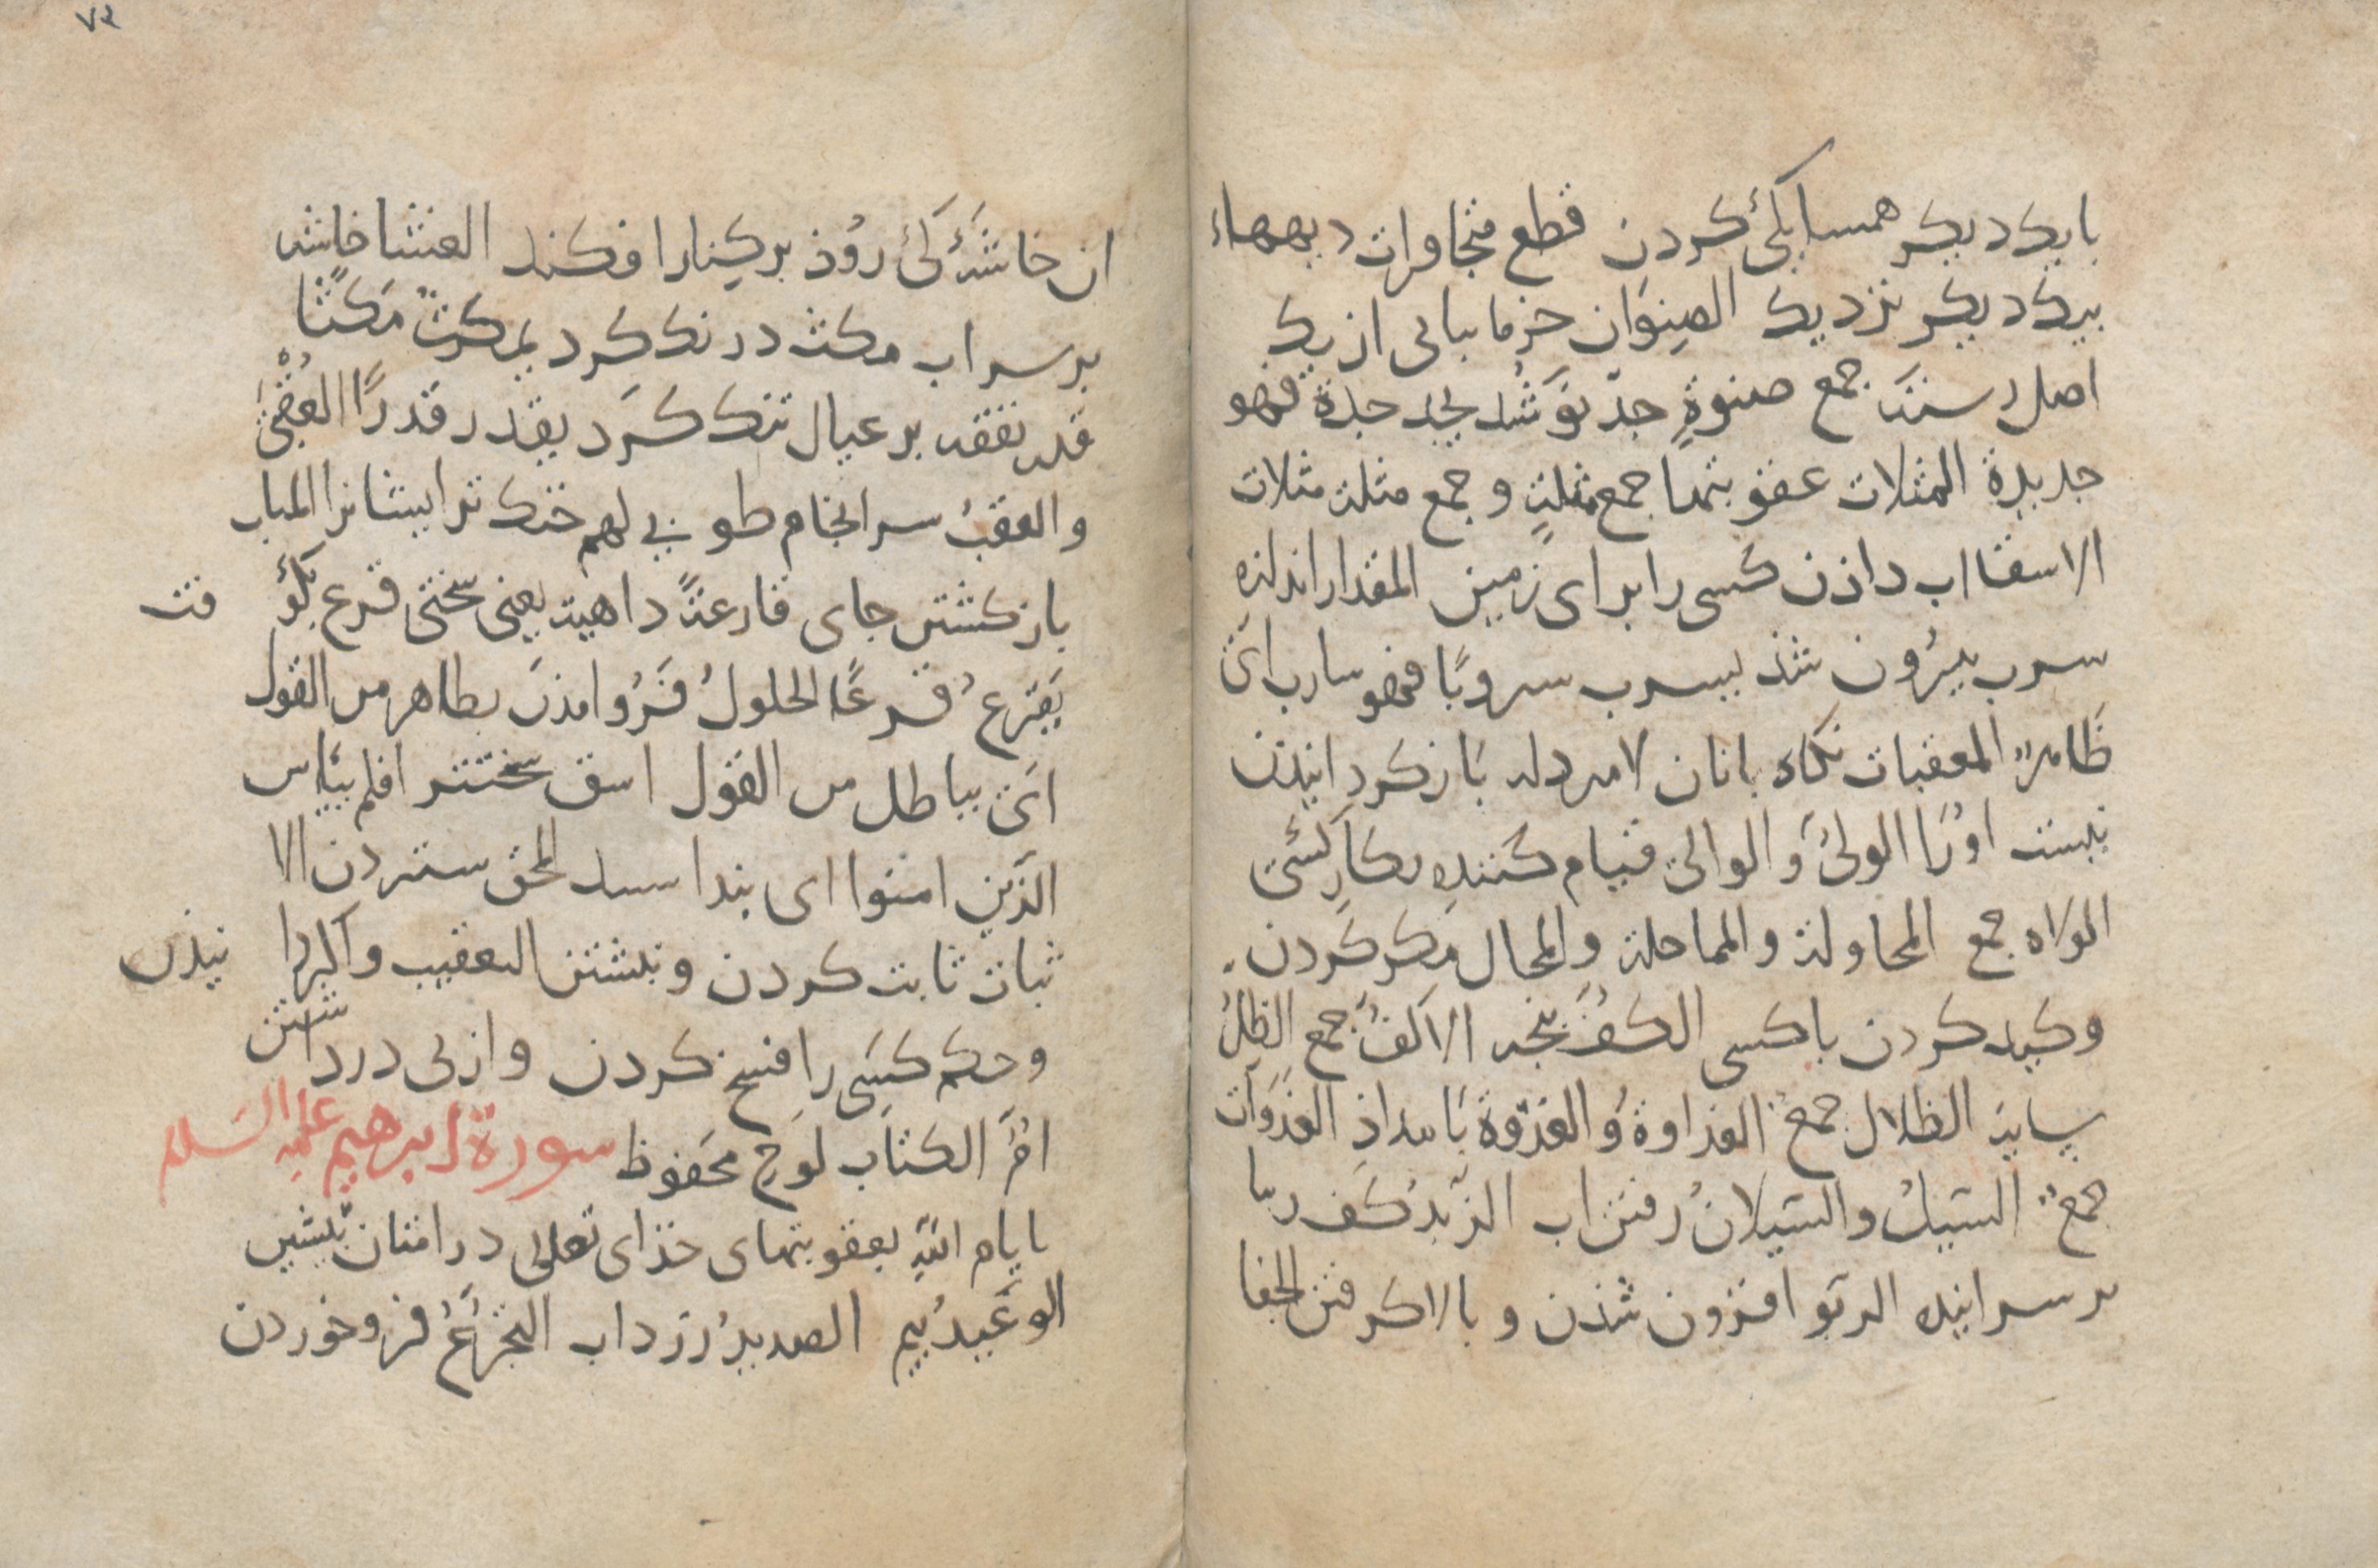 بایکدیکر همسایکئ کردن قطع متجاورات دیههاء
بیکدیکر نزدیک الصِنوَان خرما بیانی از یک
اصل رسته جمع صنوةٍ جدّ نوَ شُد یجد جدة فهو
جدیدة المثلات عقوبتها جمع مثلةٍ و جمع مثلة مثلات
الاسقا اب داذن کسی را برای زمین المقدار اندازه
سرب بیرُون شذ یسرب سروبًا فهو سارب اَیْ
ظَاهرٌ المعقبات نکاه بانان لا مرد له بَاز کردانیذن
نیست اوُرَا الولیُ وَ الوالی قیام کننده بکارِ کسَی
الوُلاه جمع المحاولة و المماحلة والمحال مَکر کردن
و کید کردن با کسی الکفُ پَنجه الاکفُ جمع الظلُ
سایه الظلال جمعٌ الغداوة وَ الغدْوة بَامداذِ الغدَوَات
جمعٌ السَیلُ و السَیلانُ رفتن اب الزَبَدُ کَف ربا
بر سر اینده الربَو افزون شذن و بالا کرفتن الجفا
ان خاشَهٔ کئ رُوذ بر کِنار افکند الغثا خاشه
بر سر اب مکث درنک کرد یمکثُ مَکثًا
قدر نفقه بر عیال تنک کَرد یقدر قدرًا العُقْبیٰ
و العقبُ سرانجام طوبی لهم خنک مر ایشانرا المآب
باز کشتن جای قارعةً داهیة یعنی سختی قرع بکوُفت
یَقرَعُ قرعًا الحلولُ فَرُو امذَن بظاهر من القول
اَیْ بباطل من القول اشق سختتر افلم ییاس
الذَین امنوا ای بندانستند المحو ستردن الا
ثبات ثابت کردن و نبشتن التعقیب واکردانیذن
و حکم کسَی را فسخ کردن و از پی درداشتن
اُمُّ الکتَاب لوَحِ محَفوظ سورة ابرهیم علیه السَلم
بایام الله بعقوبتهای خذای تعلی در امتان پیشین
الوَعیدُ بیم الصدیدُ زرداب التجرَعُ فرو خوردن